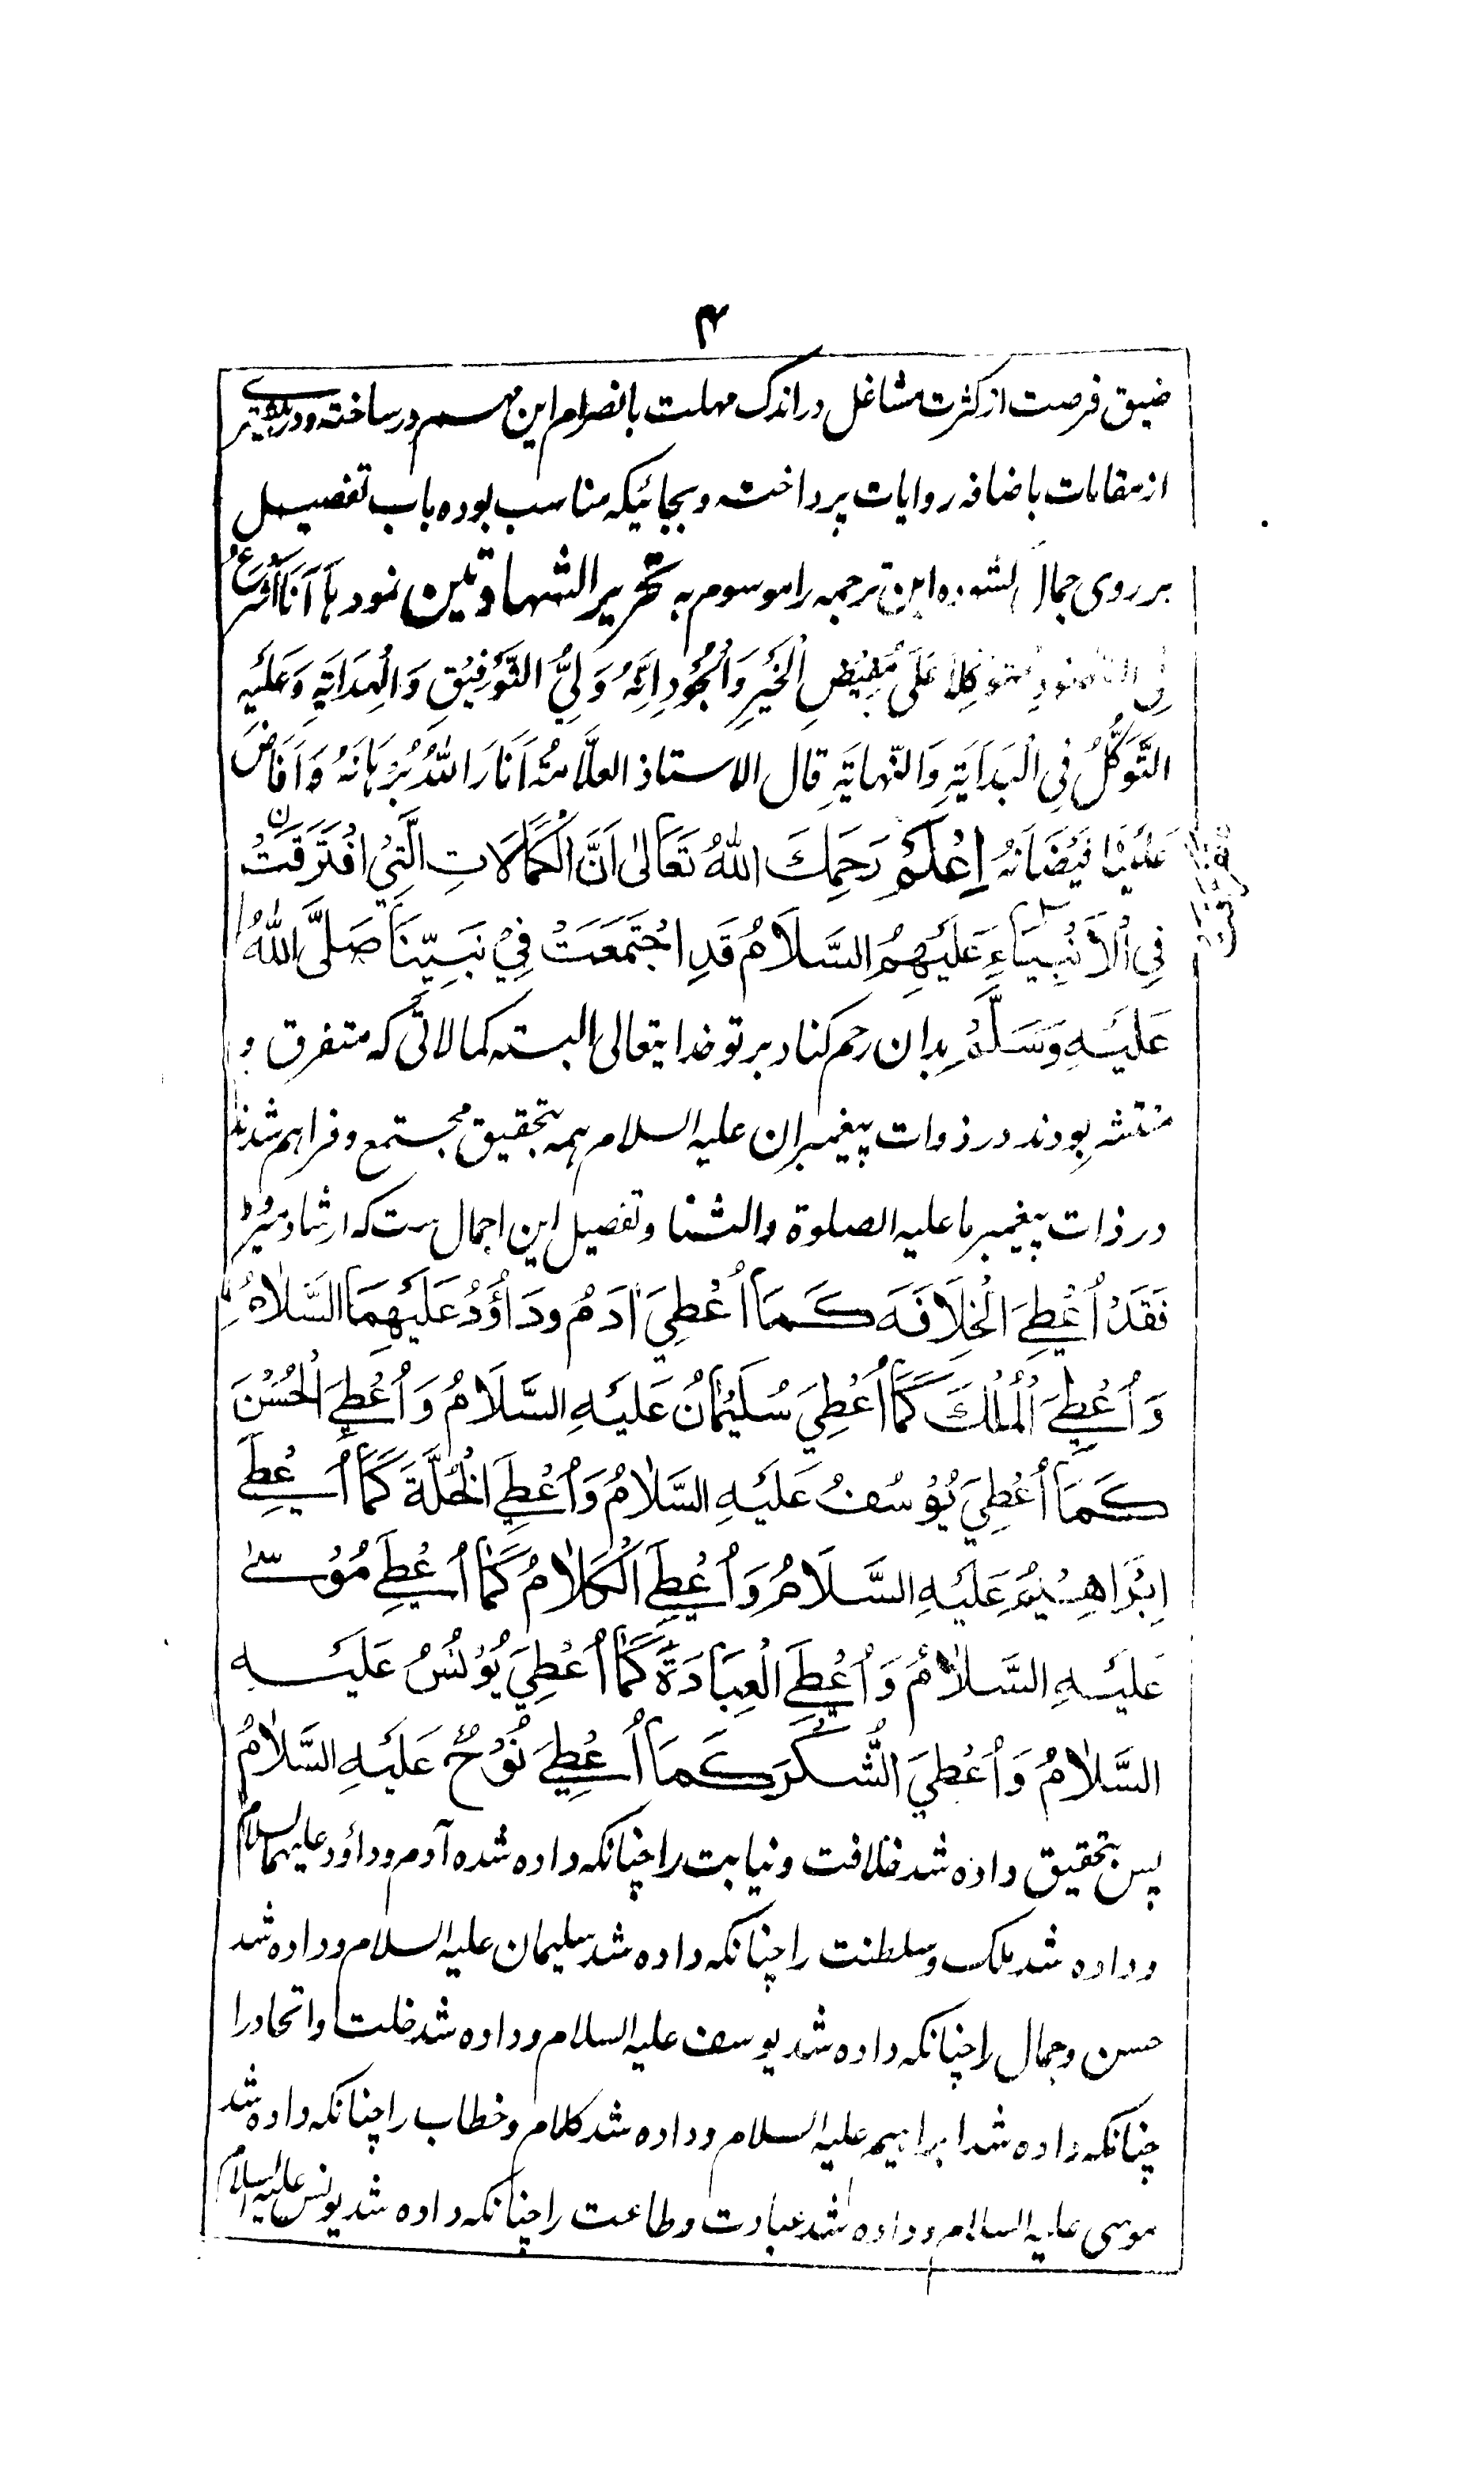 ۴
ضیق فرصت از کثرت مشاغل در اندک مهلت بانصرام این مهم درساخته ودر بیشتری
از مقامات باضافه روایات پرداخته و بجائیکه مناسب بوده باب تفصیل
بر روی جمال کشوده این ترجمه را موسوم به تحریر الشهادتین نمود هَا اَنَا اَشْرَعُ
فِی مُتَوَکِّلاً عَلَی مُفِیْضِ الْخَیْرِ وَالْجُوْدِ اِنَّهُ وَلِیُّ التَّوْفِیْقِ وَالْهِدَایَةِ وَعَلَیْهِ
التَّوَکُّلُ فِی الْبَدَایَةِ وَالنِّهَایَةِ قال الاستاذ العلَّامةُ اَنَارَ اللّٰهُ بُرْهَانَهُ وَاَفَاضَ
عَلَیْنَا فَیْضَانَهُ اِعْلَمْ رَحِمَكَ اللّٰهُ تَعَالٰی اَنَّ الْکَمَالَاتِ الَّتِیْ افْتَرَقَتْ
فِی الْاَنْبِیَاءِ عَلَیْهِمُ السَّلَامُ قَدِ اجْتَمَعَتْ فِیْ نَبِیِّنَا صَلَّی اللّٰهُ
عَلَیْهِ وَسَلَّمَ بدان رحم کناد بر تو خدایتعالی البته کمالاتی که متفرق و
منتشر بودند در ذوات پیغمبران علیه السلام همه بتحقیق مجتمع و فراهم شدند
در ذات پیغمبر ما علیه الصلوة والثنا و تفصیل این اجمال ست که ارشاد میرود
فَقَدْ اُعْطِیَ الْخِلَافَةَ کَمَا اُعْطِیَ اٰدَمُ ودَاؤُدُ عَلَیْهِمَا السَّلَامُ
وَ اُعْطِیَ الْمُلْكَ کَمَا اُعْطِیَ سُلَیْمٰنُ عَلَیْهِ السَّلَامُ وَ اُعْطِیَ الْحُسْنَ
کَمَا اُعْطِیَ یُوْسُفُ عَلَیْهِ السَّلَامُ وَ اُعْطِیَ الْخُلَّةَ کَمَا اُعْطِیَ
اِبْرَاهِیْمُ عَلَیْهِ السَّلَامُ وَ اُعْطِیَ الْکَلَامُ کَمَا اُعْطِیَ مُوْسٰی
عَلَیْهِ السَّلَامُ وَ اُعْطِیَ الْعِبَادَةَ کَمَا اُعْطِیَ یُوْنُسُ عَلَیْهِ
السَّلَامُ وَ اُعْطِیَ الشُّکْرَ کَمَا اُعْطِیَ نُوْحٌ عَلَیْهِ السَّلَامُ
پس بتحقیق داده شد خلافت و نیابت را چنانکه داده شده آدم و داؤد علیهما السلام
و داده شد ملک و سلطنت را چنانکه داده شد سلیمان علیه السلام و داده شد
حسن و جمال را چنانکه داده شد یوسف علیه السلام و داده شد خلت و اتحاد را
چنانکه داده شد ابراهیم علیه السلام و داده شد کلام و خطاب را چنانکه داده شد
موسی علیه السلام و داده شد عبادت و طاعت را چنانکه داده شد یونس علیه السلام